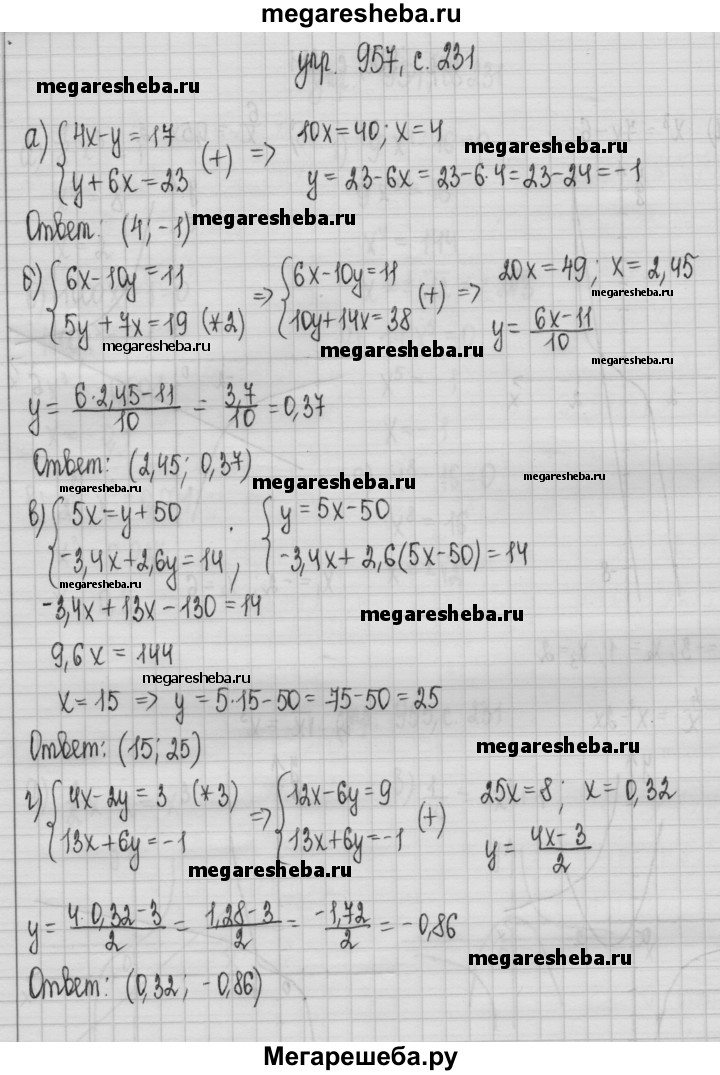 megaresheba.ru
упр. 957, с. 231
megaresheba.ru
а) { 4x-y=17
y+6x=23 (+) => 10x=40; x=4
megaresheba.ru
y=23-6x=23-6·4=23-24=-1
Ответ: (4; -1)
megaresheba.ru
б) { 6x-10y=11
5y+7x=19 (*2) => { 6x-10y=11
10y+14x=38 (+) => 20x=49; x=2,45
megaresheba.ru
y= (6x-11)/10
megaresheba.ru
megaresheba.ru
megaresheba.ru
y= (6·2,45-11)/10 = 3,7/10 =0,37
Ответ: (2,45; 0,37)
megaresheba.ru
megaresheba.ru
megaresheba.ru
в) { 5x=y+50
-3,4x+2,6y=14, { y=5x-50
-3,4x+2,6(5x-50)=14
megaresheba.ru
-3,4x+13x-130=14
megaresheba.ru
9,6x=144
megaresheba.ru
x=15 => y=5·15-50=75-50=25
Ответ: (15; 25)
megaresheba.ru
г) { 4x-2y=3 (*3)
13x+6y=-1 => { 12x-6y=9
13x+6y=-1 (+) 25x=8; x=0,32
y= (4x-3)/2
megaresheba.ru
y= (4·0,32-3)/2 = (1,28-3)/2 = -1,72/2 =-0,86
megaresheba.ru
Ответ: (0,32; -0,86)
Мегарешеба.ру